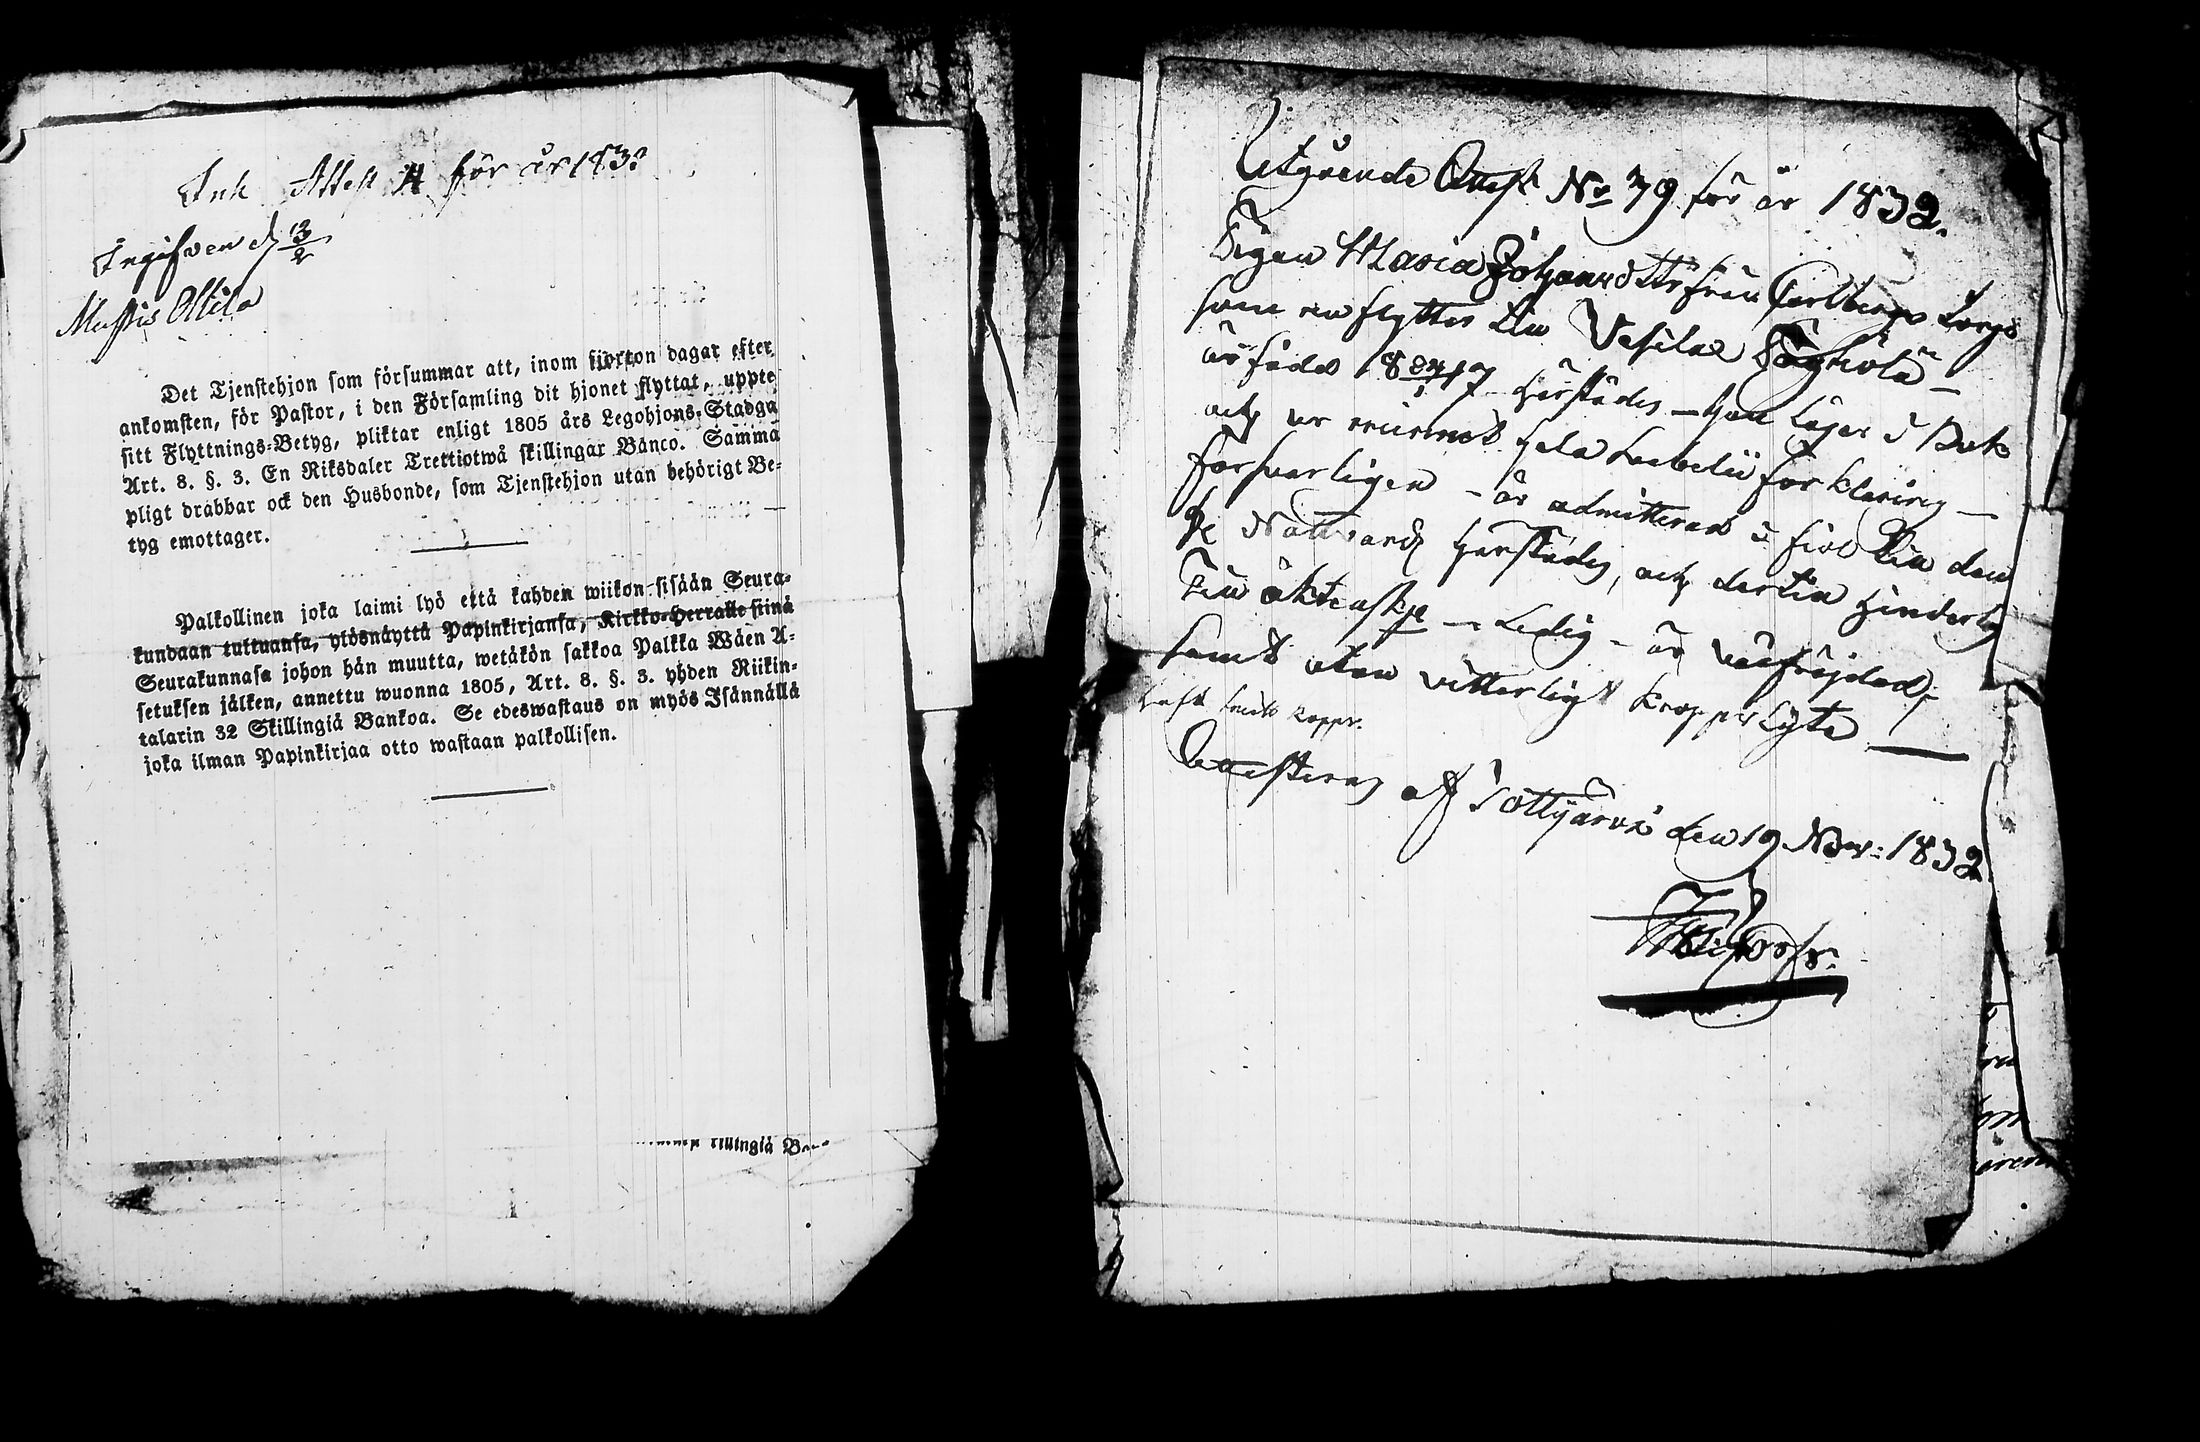 Ink Attest 4 för år 183
Ingifven d 13/2
Ollila
Det Tjenstehjon som försummar att, inom fjorton dagar efter
ankomsten, för Pastor, i den Församling dit hjonet flyttat, uppte
sitt Flyttnings-Betyg, pliktar enligt 1805 års Legohjons-Stadga
Art. 8. §. 3. En Riksdaler Trettiotwå skillingar Banco. Samma
pligt drabbar ock den Husbonde, som Tjenstehjon utan behörigt Be-
tyg emottager.
Palkollinen joka laimi lyö että kahden wiikon sisään Seura-
kundaan tultuansa, ylösnäyttä Papinkirjansa, Kirkko-Herralle siinä
Seurakunnasa johon hän muutta, wetäkön sakkoa Palkka Wäen A-
setuksen jälken, annettu wuonna 1805, Art. 8. §. 3. yhden Riikin-
talarin 32 Skillingiä Bankoa. Se edeswastaus on myös Isännällä
joka ilman Papinkirjaa otto wastaan palkollisen.
Utgående Attest No 79 för år 1832.
Pigan Maria Johansdttr från Carlberga torp
som nu flyttar till Vesilax
är född 18 härstädes – han läser i Bok
och ur minnet hela förklaring –
försvarligen – är admitterad i fjol till den
H. Nattvard härstädes, och dertill hinderlös
Till äktenskap – Ledig – är välfrejdad
samt utan vitterligt kroppslyte
haft koppr.
Attesteras af Tottijärvi den 19 Nov: 1832